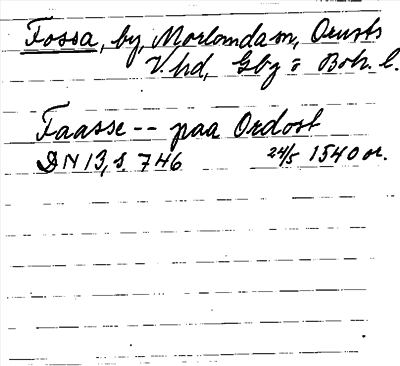 Fossa, by, Morlanda sn, Orusts
V. hd, Gbg o Boh. l.
Faasse -- paa Ordost
DN 13, s. 746 24/5 1540 or.